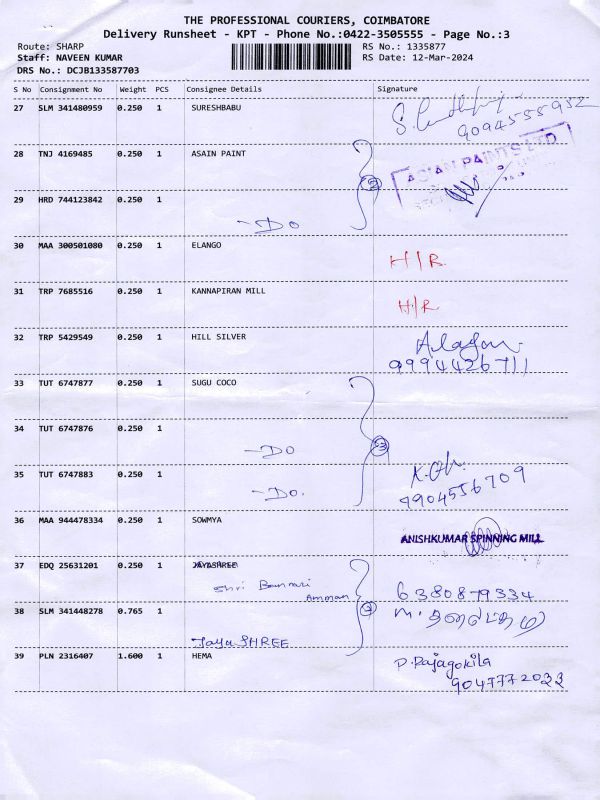 THE PROFESSIONAL COURIERS, COIMBATORE
Delivery Runsheet - KPT - Phone No.:0422-3505555 - Page No.:3
Route: SHARP RS No.: 1335877
Staff: NAVEEN KUMAR RS Date: 12-Mar-2024
DRS No.: DCJB133587703
S No Consignment No Weight PCS Consignee Details Signature
27 SLM 341480959 0.250 1 SURESHBABU
9094555952
28 TNJ 4169485 0.250 1 ASAIN PAINT ASIAN PAINTS LTD
2
29 HRD 744123842 0.250 1
-Do
30 MAA 300501080 0.250 1 ELANGO H/R.
31 TRP 7685516 0.250 1 KANNAPIRAN MILL H/R
32 TRP 5429549 1 0.250 1 HILL SILVER Alagan.
9994426711
33 TUT 6747877 0.250 1 SUGU COCO
34 TUT 6747876 0.250 1
-Do 3
35 TUT 6747883 0.250 1
-Do. 9904556709
36 MAA 944478334 0.250 1 SOWMYA ANISHKUMAR SPINNING MILL
37 EDQ 25631201 0.250 1 JAYASHREE
Shri Bannari Amman 6380879334
38 SLM 341448278 0.765 1 2
Jaya SHREE
39 PLN 2316407 1.600 1 HEMA P.Rajagokila
9047772022